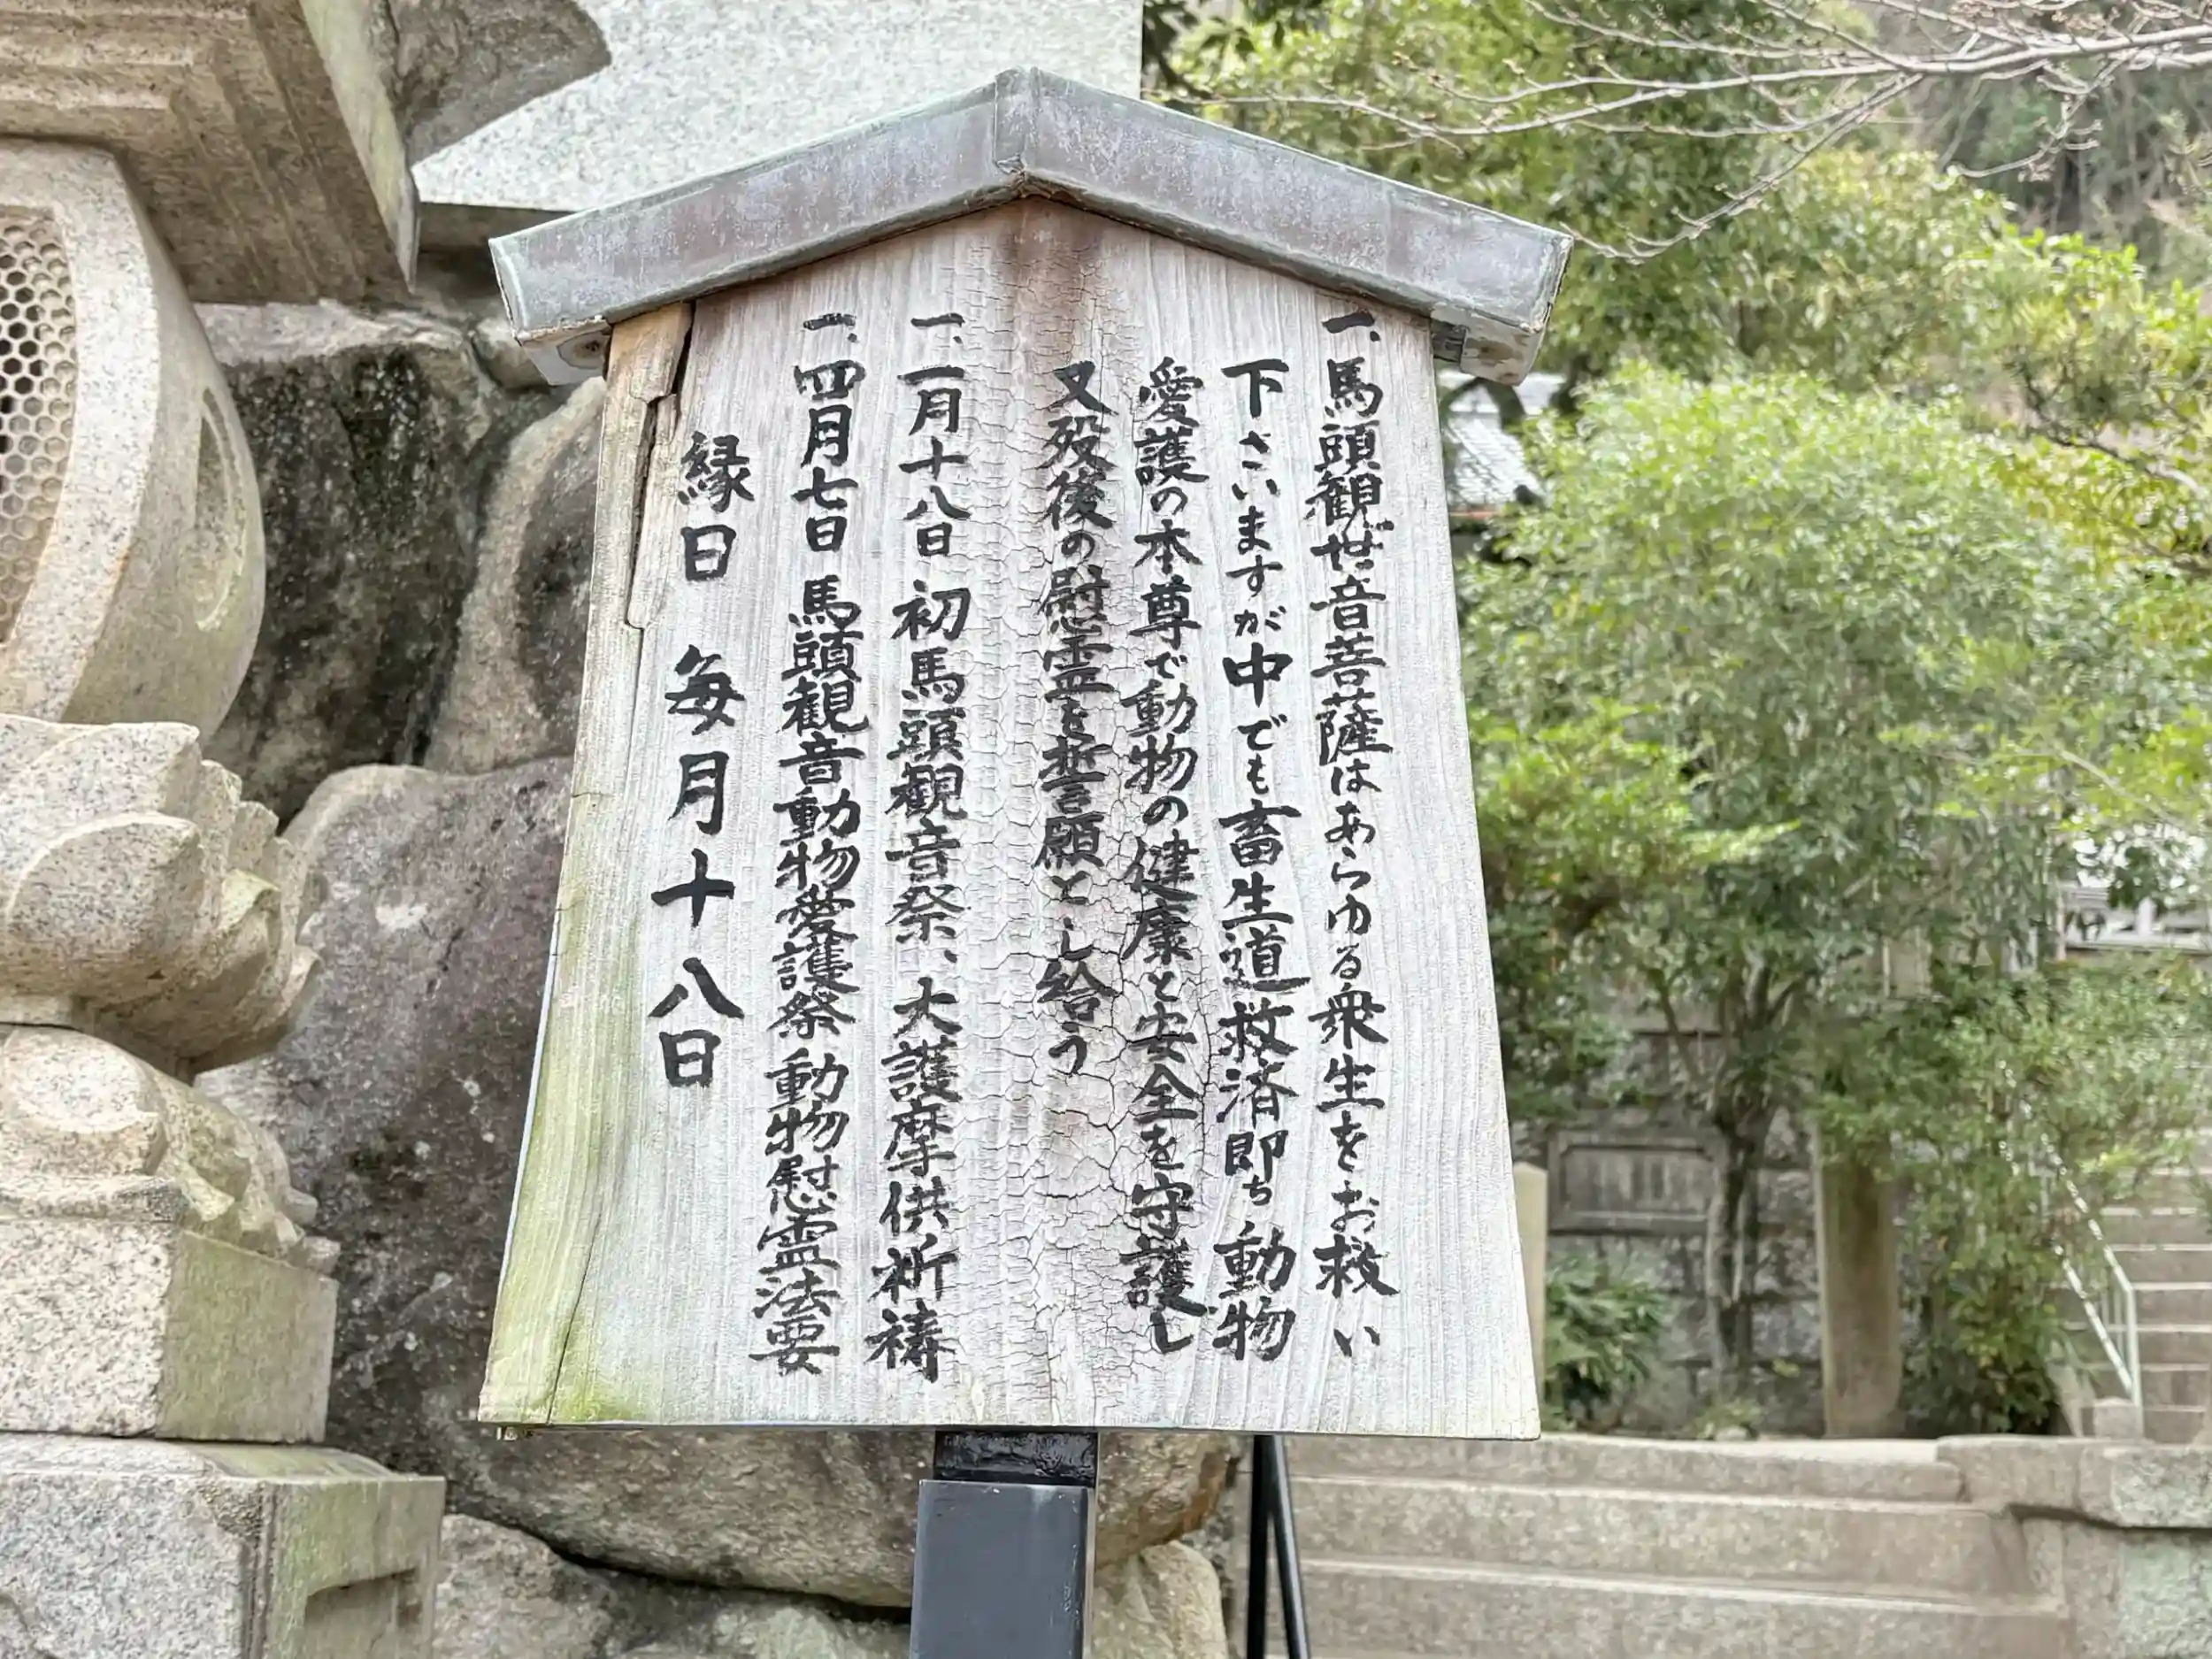 一、馬頭観世音菩薩はあらゆる衆生をお救い
下さいますが中でも畜生道救済即ち動物
愛護の本尊で動物の健康と安全を守護し
又歿後の慰霊を誓願とし給う
一、一月十八日 初馬頭観音祭、大護摩供祈祷
一、四月七日 馬頭観音動物愛護祭動物慰霊法要
縁日 毎月十八日